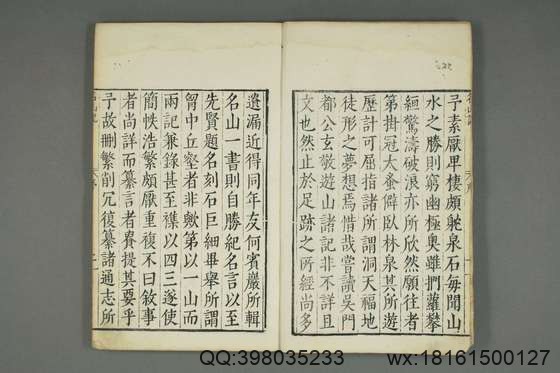 予素厭卑棲頗躭泉石每聞山
水之勝則窮幽極奧雖捫蘿攀
絙驚濤破浪亦所欣然願往者
第掛冠太蚤僻臥林泉其所遊
歷計可屈指諸所謂洞天福地
徒形之夢想焉惜哉嘗讀吳門
都公玄敬遊山諸記非不詳且
文也然止於足跡之所經尚多
遺漏近得同年友何賓巖所輯
名山一書則自勝紀名言以至
先賢題名刻石巨細畢舉所謂
胷中丘壑者非歟第以一山而
兩記兼錄甚至襍以四三遂使
簡帙浩繁頗厭重複不曰敘事
者尚詳而纂言者貴提其要乎
予故刪繁削冗復纂諸通志所
QQ:398035233
wx:18161500127